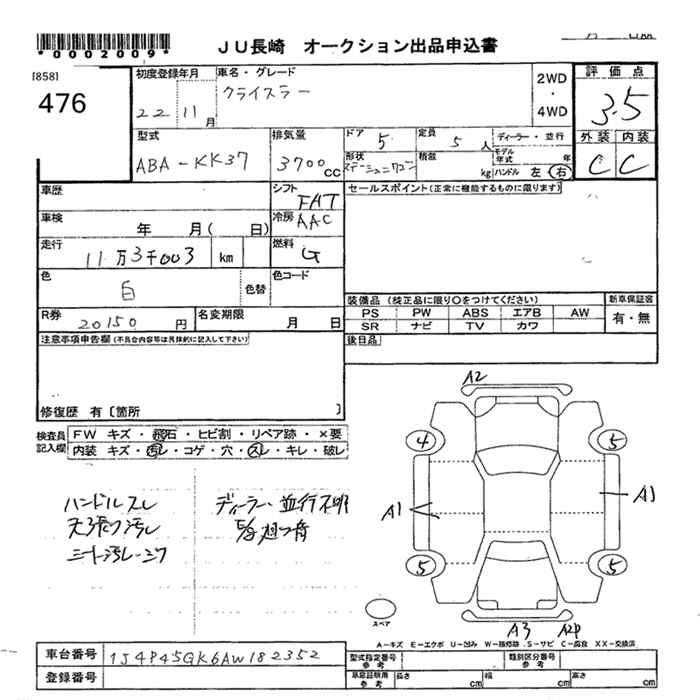 *0002009*
JU長崎 オークション出品申込書
[858]
476
初度登録年月
22 11月
車名・グレード
クライスラー
2WD
・
4WD
評価点
3.5
外装 内装
C C
型式
ABA-KK37
排気量
3700cc
ドア
5
定員
5人
ディーラー・並行
モデル年式 年
形状
ステーションワゴン
積載
kg
ハンドル 左 右
車歴
シフト
FAT
セールスポイント(正常に機能するものに限ります)
車検
年 月( 日)
冷房
AAC
走行
11万3千003
km
燃料
G
色
白
色替
色コード
装備品 (純正品に限り○をつけてください)
新車保証書
PS PW ABS エアB AW
有・無
SR ナビ TV カワ
R券
20150円
名変期限
月 日
後日品
注意事項申告欄(不具合内容等は具体的に記入して下さい)
修復歴 有〔箇所 〕
検査員
記入欄
FW キズ・飛石・ヒビ割・リペア跡・×要
内装 キズ・汚レ・コゲ・穴・スレ・キレ・破レ
ハンドルスレ
天張り汚レ
シート汚レ
ディーラー・並行不明
A2
4
5
A1
A1
5
5
スペア
A3 A2P
A-キズ E-エクボ U-凹み W-補修跡 S-サビ C-腐食 XX-交換済
車台番号
1J4P45GK6AW182352
登録番号
型式指定番号
参考
類別区分番号
参考
車庫証明用
参考
長さ cm
幅 cm
高さ cm